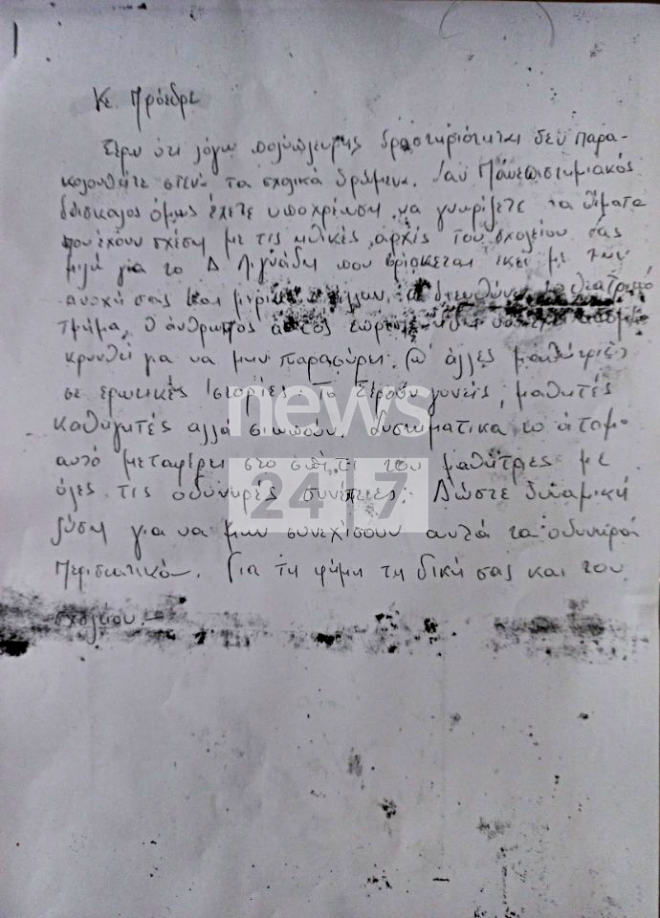 Κε Πρόεδρε
Ξέρω ότι λόγω πολύπλευρης δραστηριότητας δεν παρα-
κολουθείτε στενά τα σχολικά δρώμενα. Σαν Πανεπιστημιακός
δάσκαλος όμως έχετε υποχρέωση να γνωρίζετε τα θέματα
που έχουν σχέση με τις ηθικές αρχές του σχολείου σας
μιλώ για το Δ Λιγνάδη που βρίσκεται εκεί με την
ανοχή σας και μερικών άλλων. διευθύνει το θεατρικό
τμήμα. Ο άνθρωπος αυτός
κρυνθεί για να μην παρασύρει άλλες μαθήτριες
σε ερωτικές ιστορίες. Το ξέρουν γονείς, μαθητές
καθηγητές αλλά σιωπούν. Συστηματικά το άτομο
αυτό μεταφέρει στο σπίτι του μαθήτρες με
όλες τις οδυνηρές συνέπειες. Δώστε δυναμική
λύση για να μην συνεχίσουν αυτά τα οδυνηρά
περιστατικά. Για τη φήμη τη δική σας και του
σχολείου.-
news
24 7